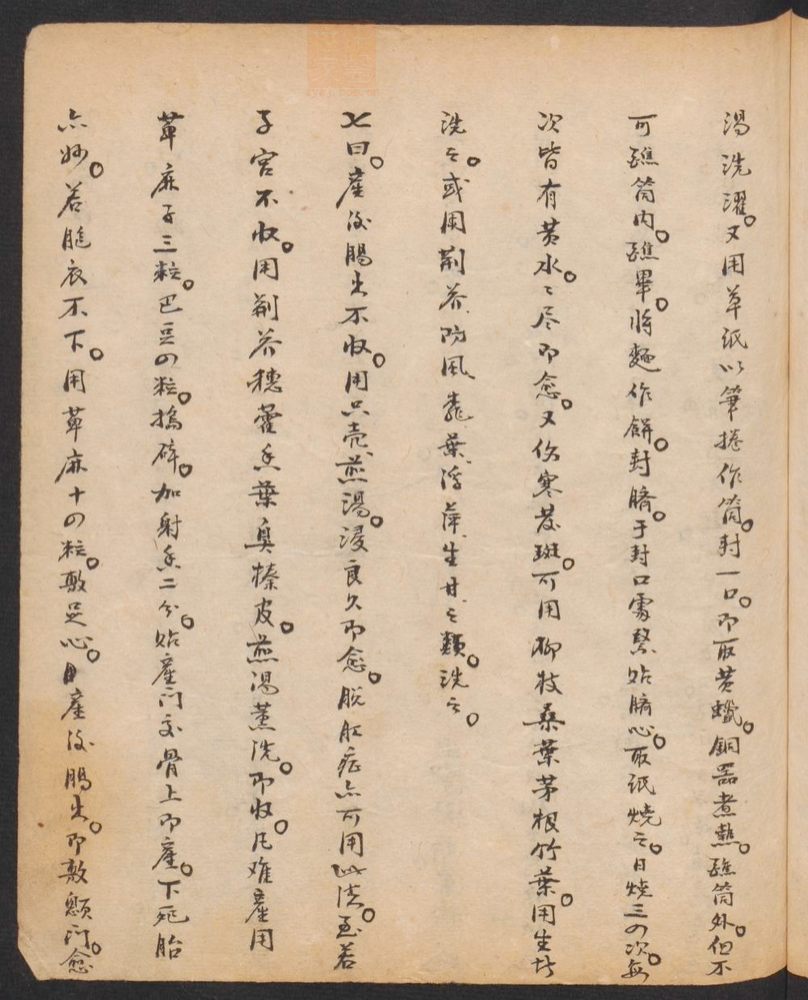 湯洗濯。又用草紙以筆捲作筒。封一口。即取黃蠟。銅器煮熱。蘸筒外。但不
可蘸筒內。蘸畢。將麵作餅。封臍。于封口處緊貼臍心。取紙燒之。日燒三四次。每
次皆有黃水。〻尽即愈。又傷寒发斑。可用柳枝桑葉茅根竹葉。用生
洗之。或用荆芥防風葉浮萍生甘之類。洗之。
七曰。產後腸出不收。用只壳煎湯。浸良久即愈。脫肛症亦可用此法。至若
子宮不收。用荆芥穗藿香葉臭椿皮。煎湯薰洗。即收。凡难產用
草麻子三粒。巴豆四粒。搗碎。加射香二分。貼產门交骨上即產。下死胎
亦妙。若胞衣不下。用草麻十四粒。敷足心。產後腸出。即敷顖门。愈